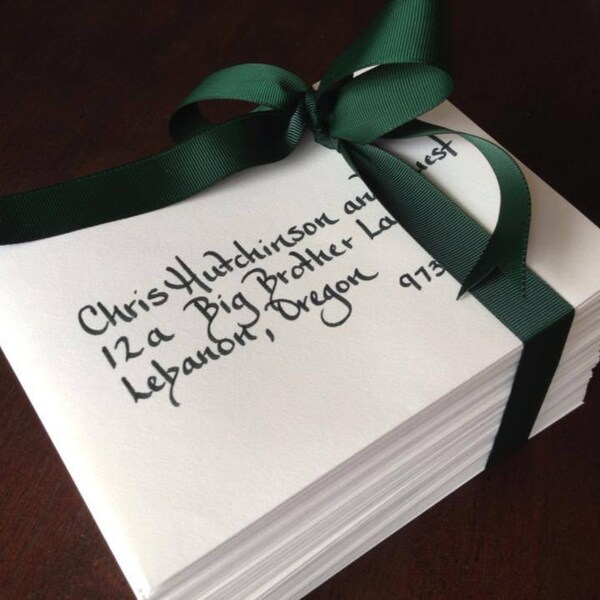 Chris Hutchinson an uest
12a Big Brother La
Lebanon, Oregon 973